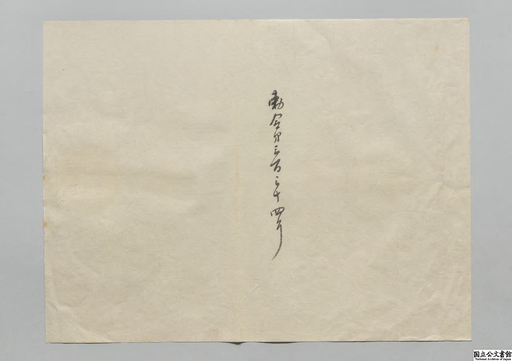 勅令第三百三十四号
国立公文書館
National Archives of Japan